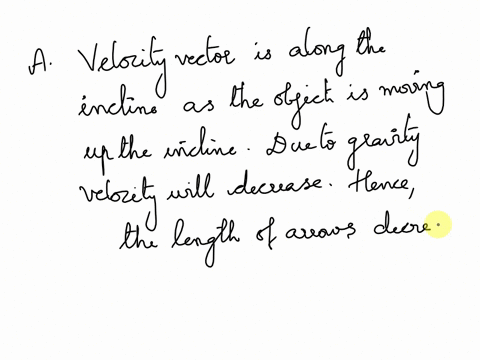 A. Velocity vector is along the
incline as the object is moving
up the incline. Due to gravity
velocity will decrease. Hence,
the length of arrows decre